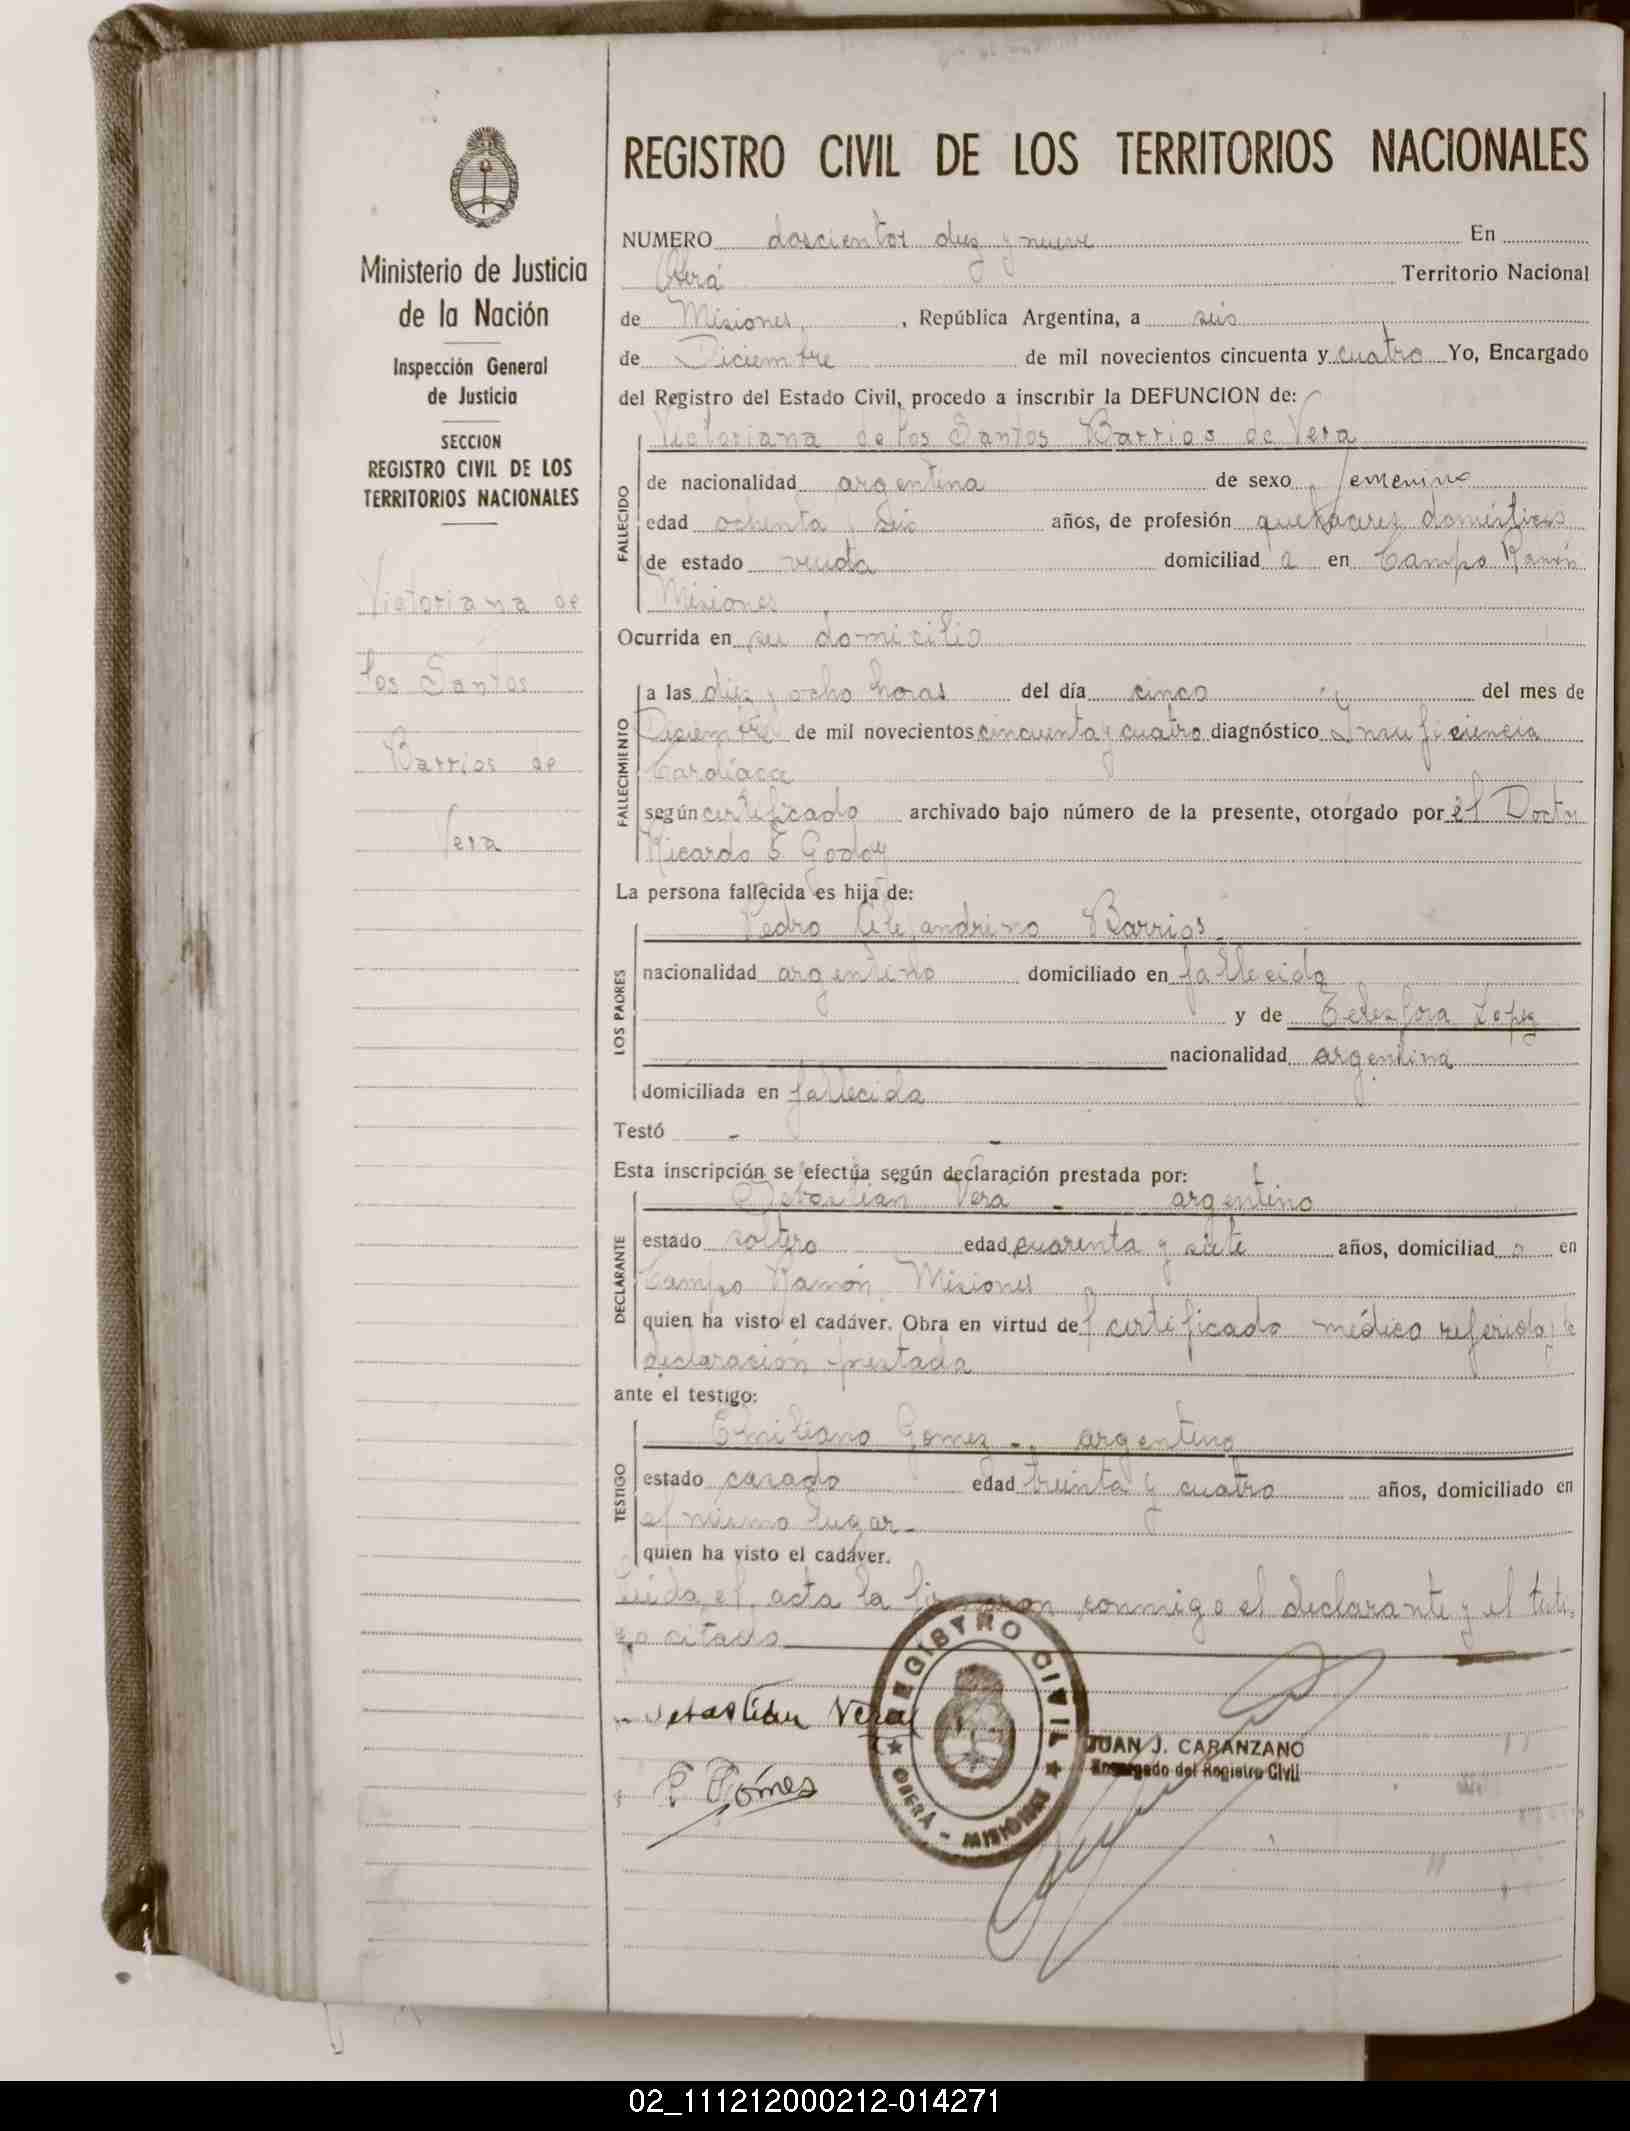 REGISTRO CIVIL DE LOS TERRITORIOS NACIONALES
Ministerio de Justicia
de la Nación
Inspección General
de Justicia
SECCION
REGISTRO CIVIL DE LOS
TERRITORIOS NACIONALES
Victoriana de
los Santos
Barrios de
Vera
NUMERO doscientos diez y nueve En
Oberá Territorio Nacional
de Misiones, , República Argentina, a seis
de Diciembre de mil novecientos cincuenta y cuatro Yo, Encargado
del Registro del Estado Civil, procedo a inscribir la DEFUNCION de:
Victoriana de los Santos Barrios de Vera
FALLECIDO
de nacionalidad argentina de sexo femenino
edad ochenta y seis años, de profesión quehaceres domésticos
de estado viuda domiciliad a en Campo Ramón
Misiones
Ocurrida en su domicilio
FALLECIMIENTO
a las diez y ocho horas del día cinco del mes de
Diciembre de mil novecientos cincuenta y cuatro diagnóstico Insuficiencia
Cardíaca
según certificado archivado bajo número de la presente, otorgado por el Doctor
Ricardo E Godoy
La persona fallecida es hija de:
LOS PADRES
Pedro Alejandrino Barrios
nacionalidad argentino domiciliado en fallecido
y de Telesfora Lopez
nacionalidad argentina
domiciliada en fallecida
Testó - -
Esta inscripción se efectúa según declaración prestada por:
DECLARANTE
Sebastian Vera - argentino
estado soltero edad cuarenta y siete años, domiciliad o en
Campo Ramón, Misiones
quien ha visto el cadáver. Obra en virtud del certificado médico referido y la
declaración prestada
ante el testigo:
TESTIGO
Emiliano Gomez -, argentino
estado casado edad treinta y cuatro años, domiciliado en
el mismo lugar -
quien ha visto el cadáver.
Leida el acta la firmaron conmigo el declarante y el testi-
go citado
Sebastian Vera
E Gómes
REGISTRO CIVIL
OBERÁ - MISIONES
JUAN J. CARANZANO
Encargado del Registro Civil
02_111212000212-014271